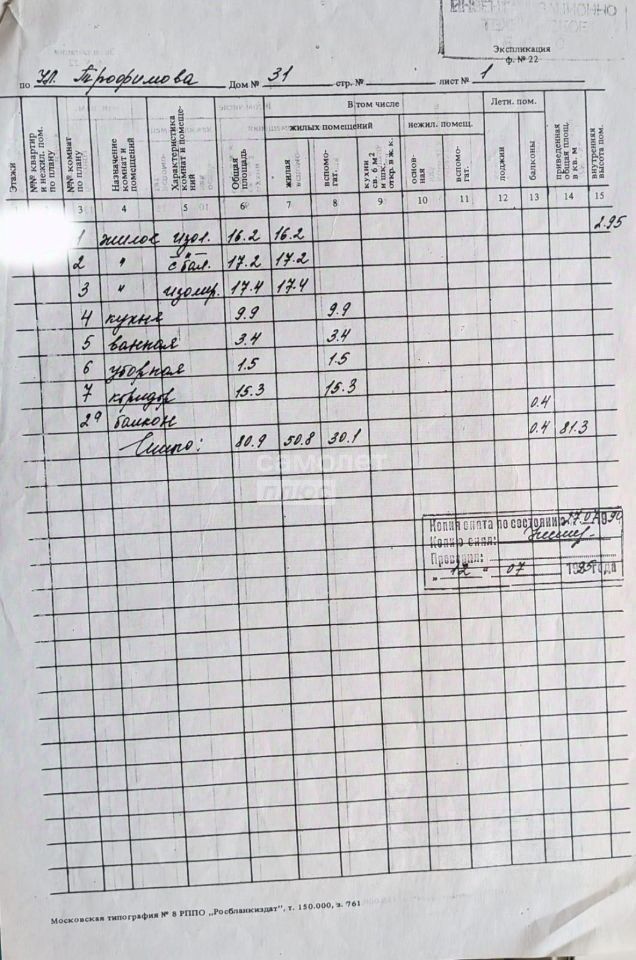 Экспликация
ф. № 22
по ул. Трофимова Дом № 31 стр. № лист № 1
Этажи №№ квартир и нежил. пом. по плану №№ комнат по плану Назначение комнат и помещений Характеристика комнат и помещений Общая площадь В том числе Летн. пом. приведенная общая площ. в кв. м внутренняя высота пом.
жилых помещений нежил. помещ.
жилая вспомогат. кухни св. 6 м2 и шк., откр. в ж. к. основная вспомогат. лоджии балконы
3 5 6 7 8 9 10 11 12 13 14 15
1 жилое изол. 16.2 16.2 2.95
2 " с бал. 17.2 17.2
3 " изолир. 17.4 17.4
4 кухня 9.9 9.9
5 ванная 3.4 3.4
6 уборная 1.5 1.5
7 коридор 15.3 15.3
2а балкон 0.4
Итого: 80.9 50.8 30.1 0.4 81.3
самолет
плюс
Копия снята по состоянию 27.07.90
Копию снял:
Проверил:
" 12 " 07 года
Московская типография № 8 РППО „Росбланкиздат", т. 150.000, з. 761